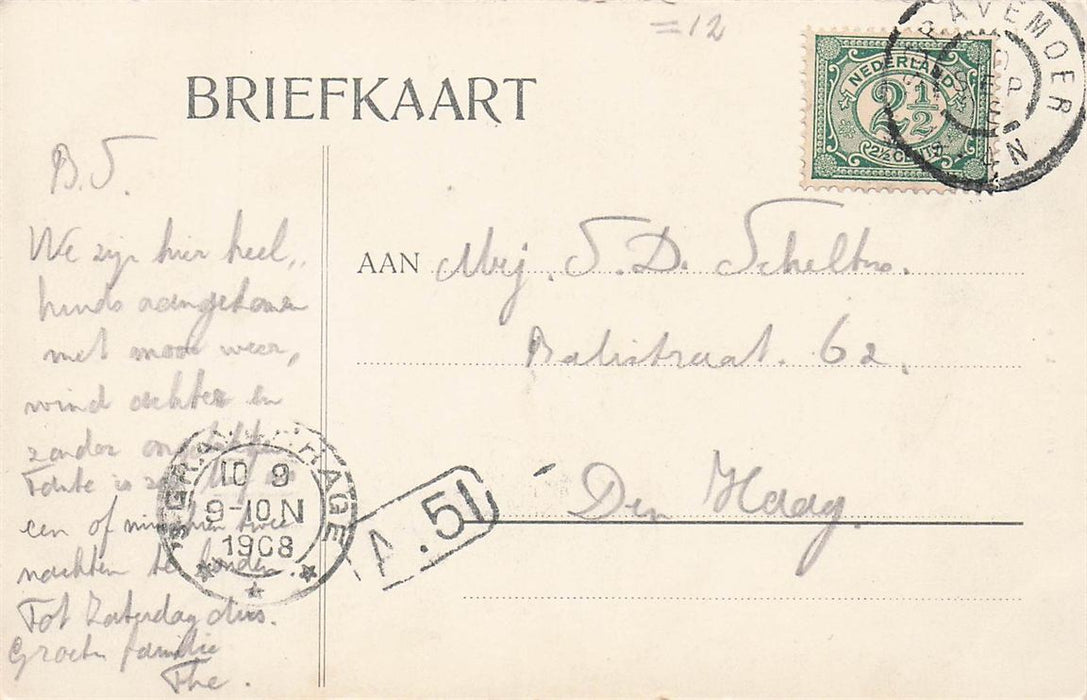 =12
BRIEFKAART
NEDERLAND
2½
2½ CENT
RAVEMOER
SEP
N
B.S.
We zijn hier heel,
aangekomen
met mooi weer,
wind achter en
zonder
Tante is
een of misschien twee
nachten te houden.
Tot Zaterdag dus.
Groeten familie
The.
AAN Mej. S. D. Scheltus.
Balistraat. 62.
Den Haag.
'S GRAVENHAGE
10 9
9-10 N
1908
A.51